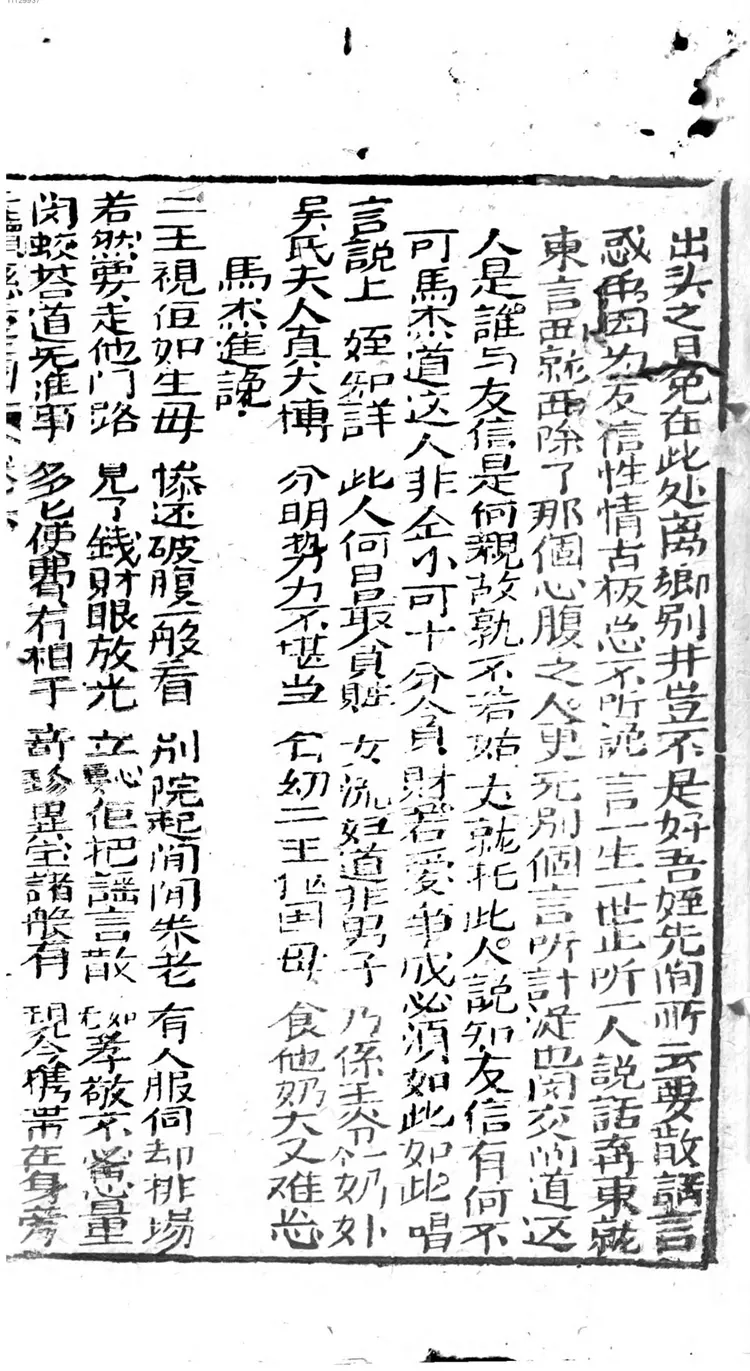 出头之日免在此处离鄉别井豈不是好吾姪先间所云要散謡言
惑弟因为友信性情古板总不听说言一生一世止听一人説話再東就
東言西就西除了那個心腹之人更无别個言听計従也闵交闻道这
人是誰与友信是何親故孰不若姑丈就托此人説知友信有何不
可馬杰道这人非仝小可十分貪財若爱事成必須如此如此唱
言說上 姪知詳 此人何昌最貪賍 女流妇道非男子 乃係王爷奶奶外
吴氏夫人真大愽 分明势力不堪当 仝幼二王伩国母 食他奶大又难忘
馬杰進說
二王視佢如生母 惨还破腹一般看 别院起间间养老 有人服伺却排場
若然要走他门路 見了錢財眼放光 立心佢把謡言散 孝敬不必思量
闵蛟答道无难事 多乜使費冇相干 奇珍異宝諸般有 現今携帯在身旁